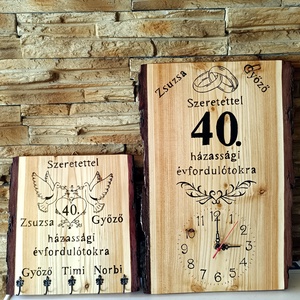 Szeretettel
40.
Zsuzsa Győző
házassági
évfordulótokra
Győző Timi Norbi
Zsuzsa Győző
Szeretettel
40.
házassági
évfordulótokra
12
1
2
3
4
5
6
7
8
9
10
11